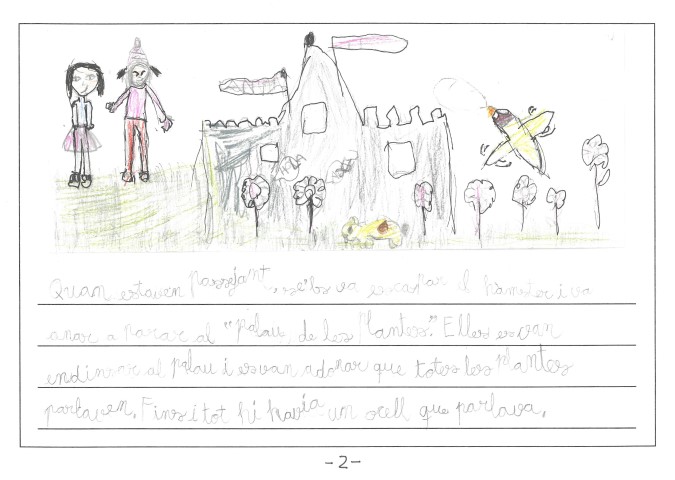 Quan estaven passejant, se'ls va escapar el hàmster i va
anar a parar al "palau de les plantes". Elles es van
endinsar al palau i es van adonar que totes les plantes
parlaven. Fins i tot hi havia un ocell que parlava.
-2-